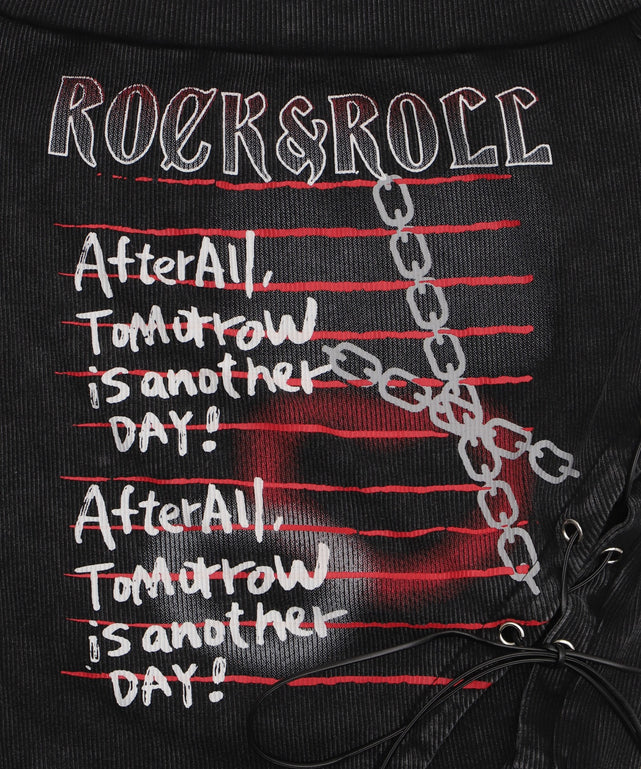 ROCK&ROLL
AfterAll,
ToMorrow
is another
DAY!
AfterAll,
ToMorrow
is another
DAY!